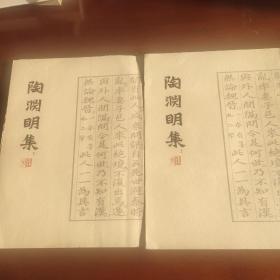 陶淵明集
聞有此人咸來問訊自云先世避秦時
亂率妻子邑人來此絕境不復出焉遂
與外人間隔問今是何世乃不知有漢
無論魏晉
此人一一為具言
陶淵明集
亂率妻子邑人來此絕境不復出焉遂
與外人間隔問今是何世乃不知有漢
無論魏晉
此人一一為具言